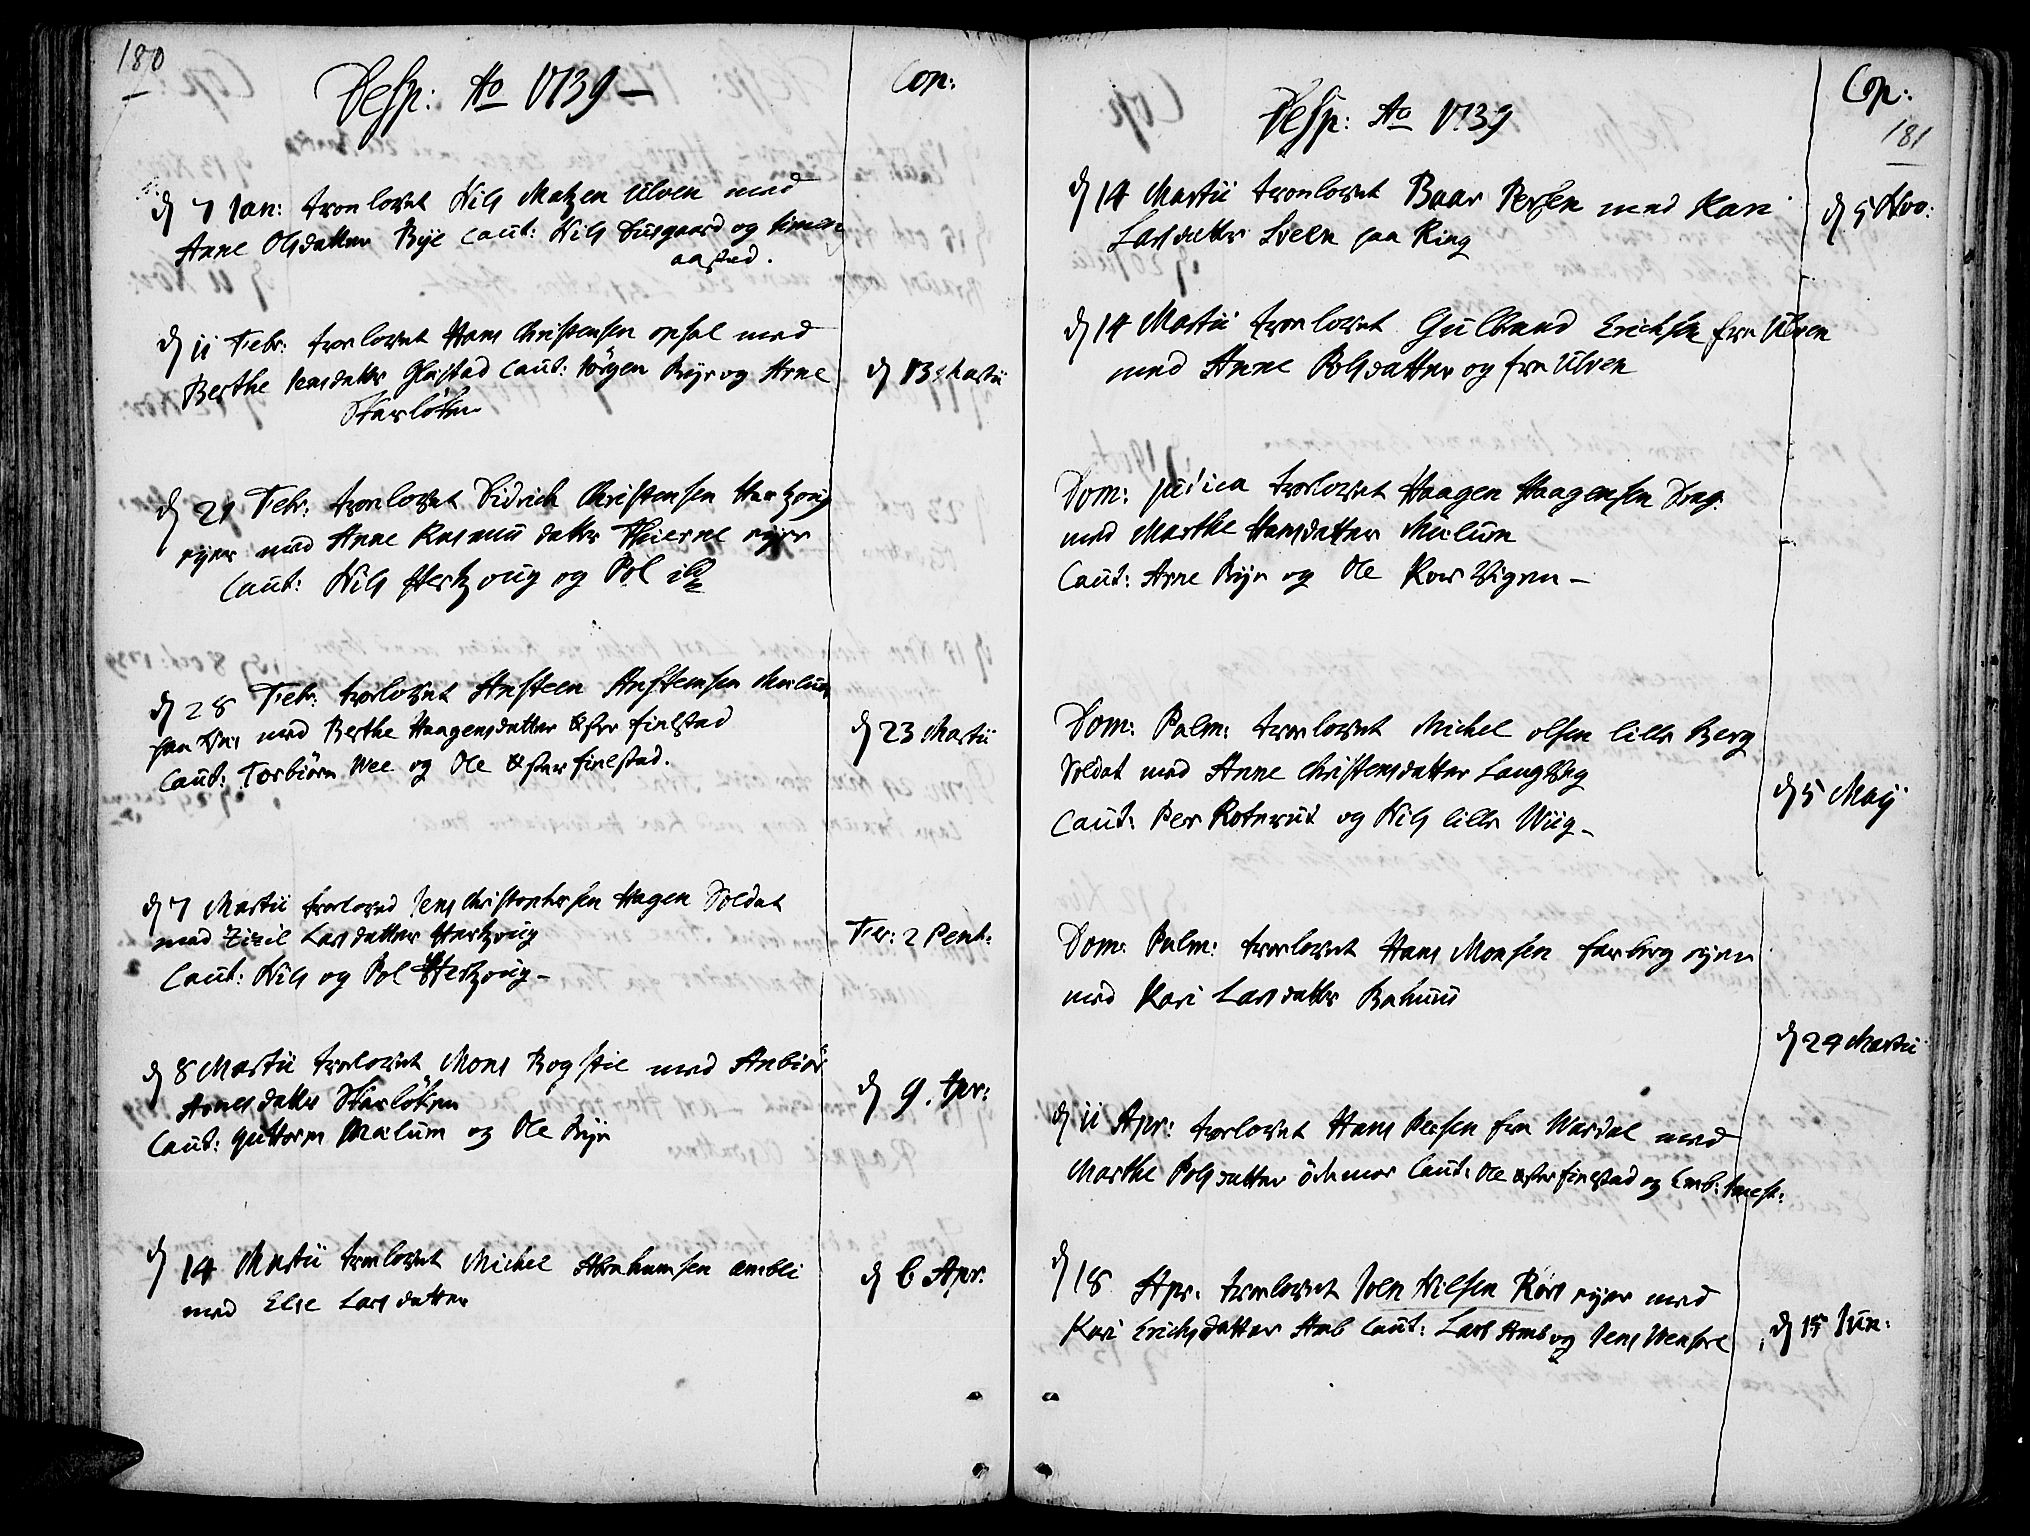 180
Desp: Ao 1739 —
Cop:
d 7 Jan: trorlovet Nils Matzen Ulven med
Anne Olsdatter Bye Caut: Nils Dusgaard og Simen
aastad.
d 11 Febr: trorlovet Hans Christensen opsal med
Berthe Jensdatter Glæstad Caut: Jörgen Bye og Arne
Skarlöken
d 13 Martii
d 21 Febr: trorlovet Didrich Christensen Hertzoug
eyer med Anne Rasmus datter Thierne eyer
Caut: Nils Hertzoug og Pol ibd
d 28 Febr: trorlovet Ansteen Anstensen Mælum
paa med Berthe Haagensdatter öster finstad
Caut: Torbiörn Wee og Ole öster finstad.
d 23 Martii
d 7 Martii trorloved Jens Christophersen Hagen Soldat
med Zizil Larsdatter Hertzoug
Caut: Nils og Pol Hertzoug –
Fer: 2 Pent:
d 8 Martii trorlovet Mons Bogstie med Anbiör
Arnesdatter Skarlöken
Caut: Guttorm Mælum og Ole Bye
d 9. Apr:
d 14 Martii trorlovet Michel Abrahamsen æmbli
med Else Larsdatter
d 6 Apr:
Desp: Ao 1739
Cop:
181
d 14 Martii trorlovet Baar Persen med Kari
Larsdatter Sveen paa Ring
d 5 Nov:
d 14 Martii trorlovet Gulbrand Erichsen fra Ulven
med Anne Polsdatter og fra Ulven
Dom: judica trorlovet Haagen Haagensen Drag:
med Marthe Hansdatter Mælum
Caut: Arne Bye og Ole Korsvigen –
Dom: Palm: trorlovet Michel olsen lille Berg
Soldat med Anne Christensdatter Langvæg
Caut: Per Roterud og Nils lille Wiig –
d 5 Maij
Dom: Palm: trorlovet Hans Monsen farberg eyer
med Kari Larsdatter Bahuus
d 29 Martii
d 11 Apr: trorlovet Hans Persen fra Wardal med
Marthe Polsdatter ödemor Caut: Ole öster finstad og Emb:
d 18 Apr: trorlovet Joen Nilsen Rörs eyer med
Kari Erichsdatter Amb Caut: Lars Amb og Jens Wensvee
d 15 Jun: